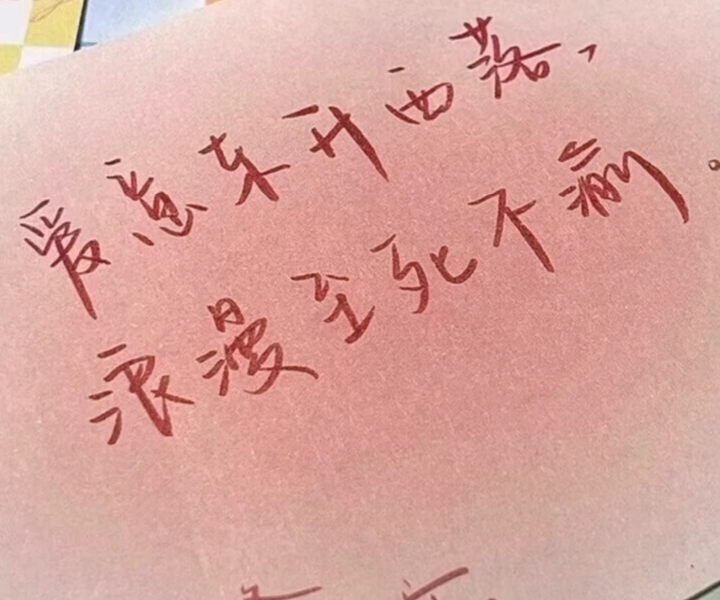 爱意东升西落，
浪漫至死不渝